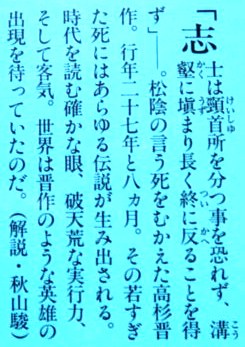 「志士は頸首所を分つ事を恐れず、溝
壑に塡まり長く終に反ることを得
ず」――。松陰の言う死をむかえた高杉晋
作。行年二十七年と八ヵ月。その若すぎ
た死にはあらゆる伝説が生み出される。
時代を読む確かな眼、破天荒な実行力、
そして客気。世界は晋作のような英雄の
出現を待っていたのだ。（解説・秋山駿）